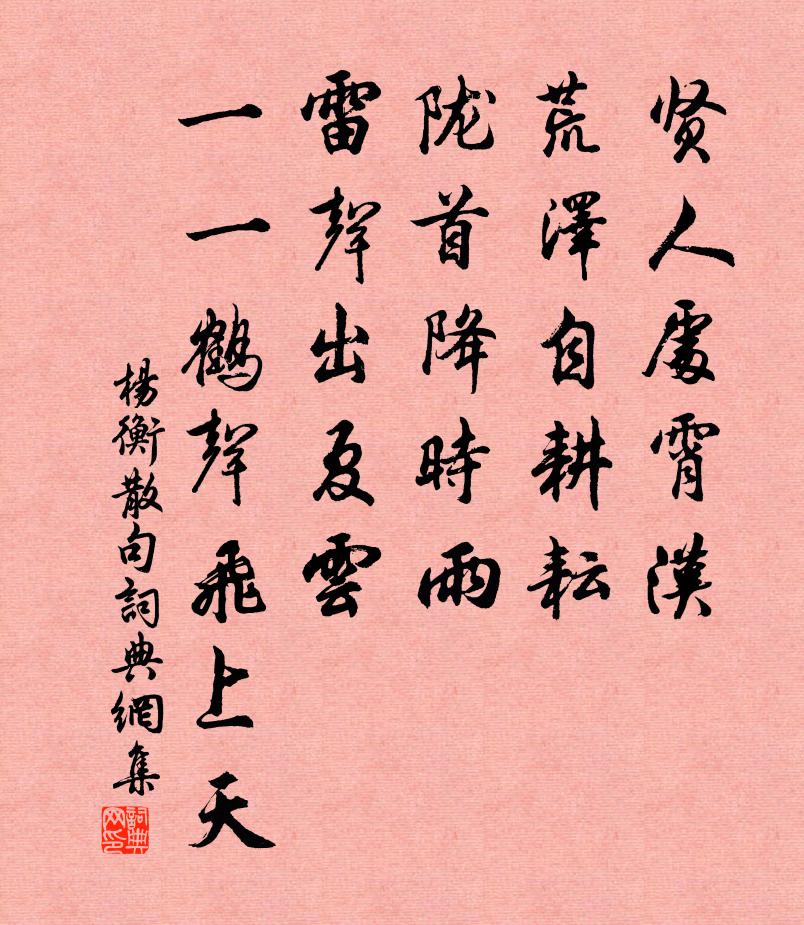 贤人處霄漢
荒澤自耕耘
陇首降時雨
雷聲出夏雲
一一鶴聲飛上天
楊衡散句詞典網集
詞典网印